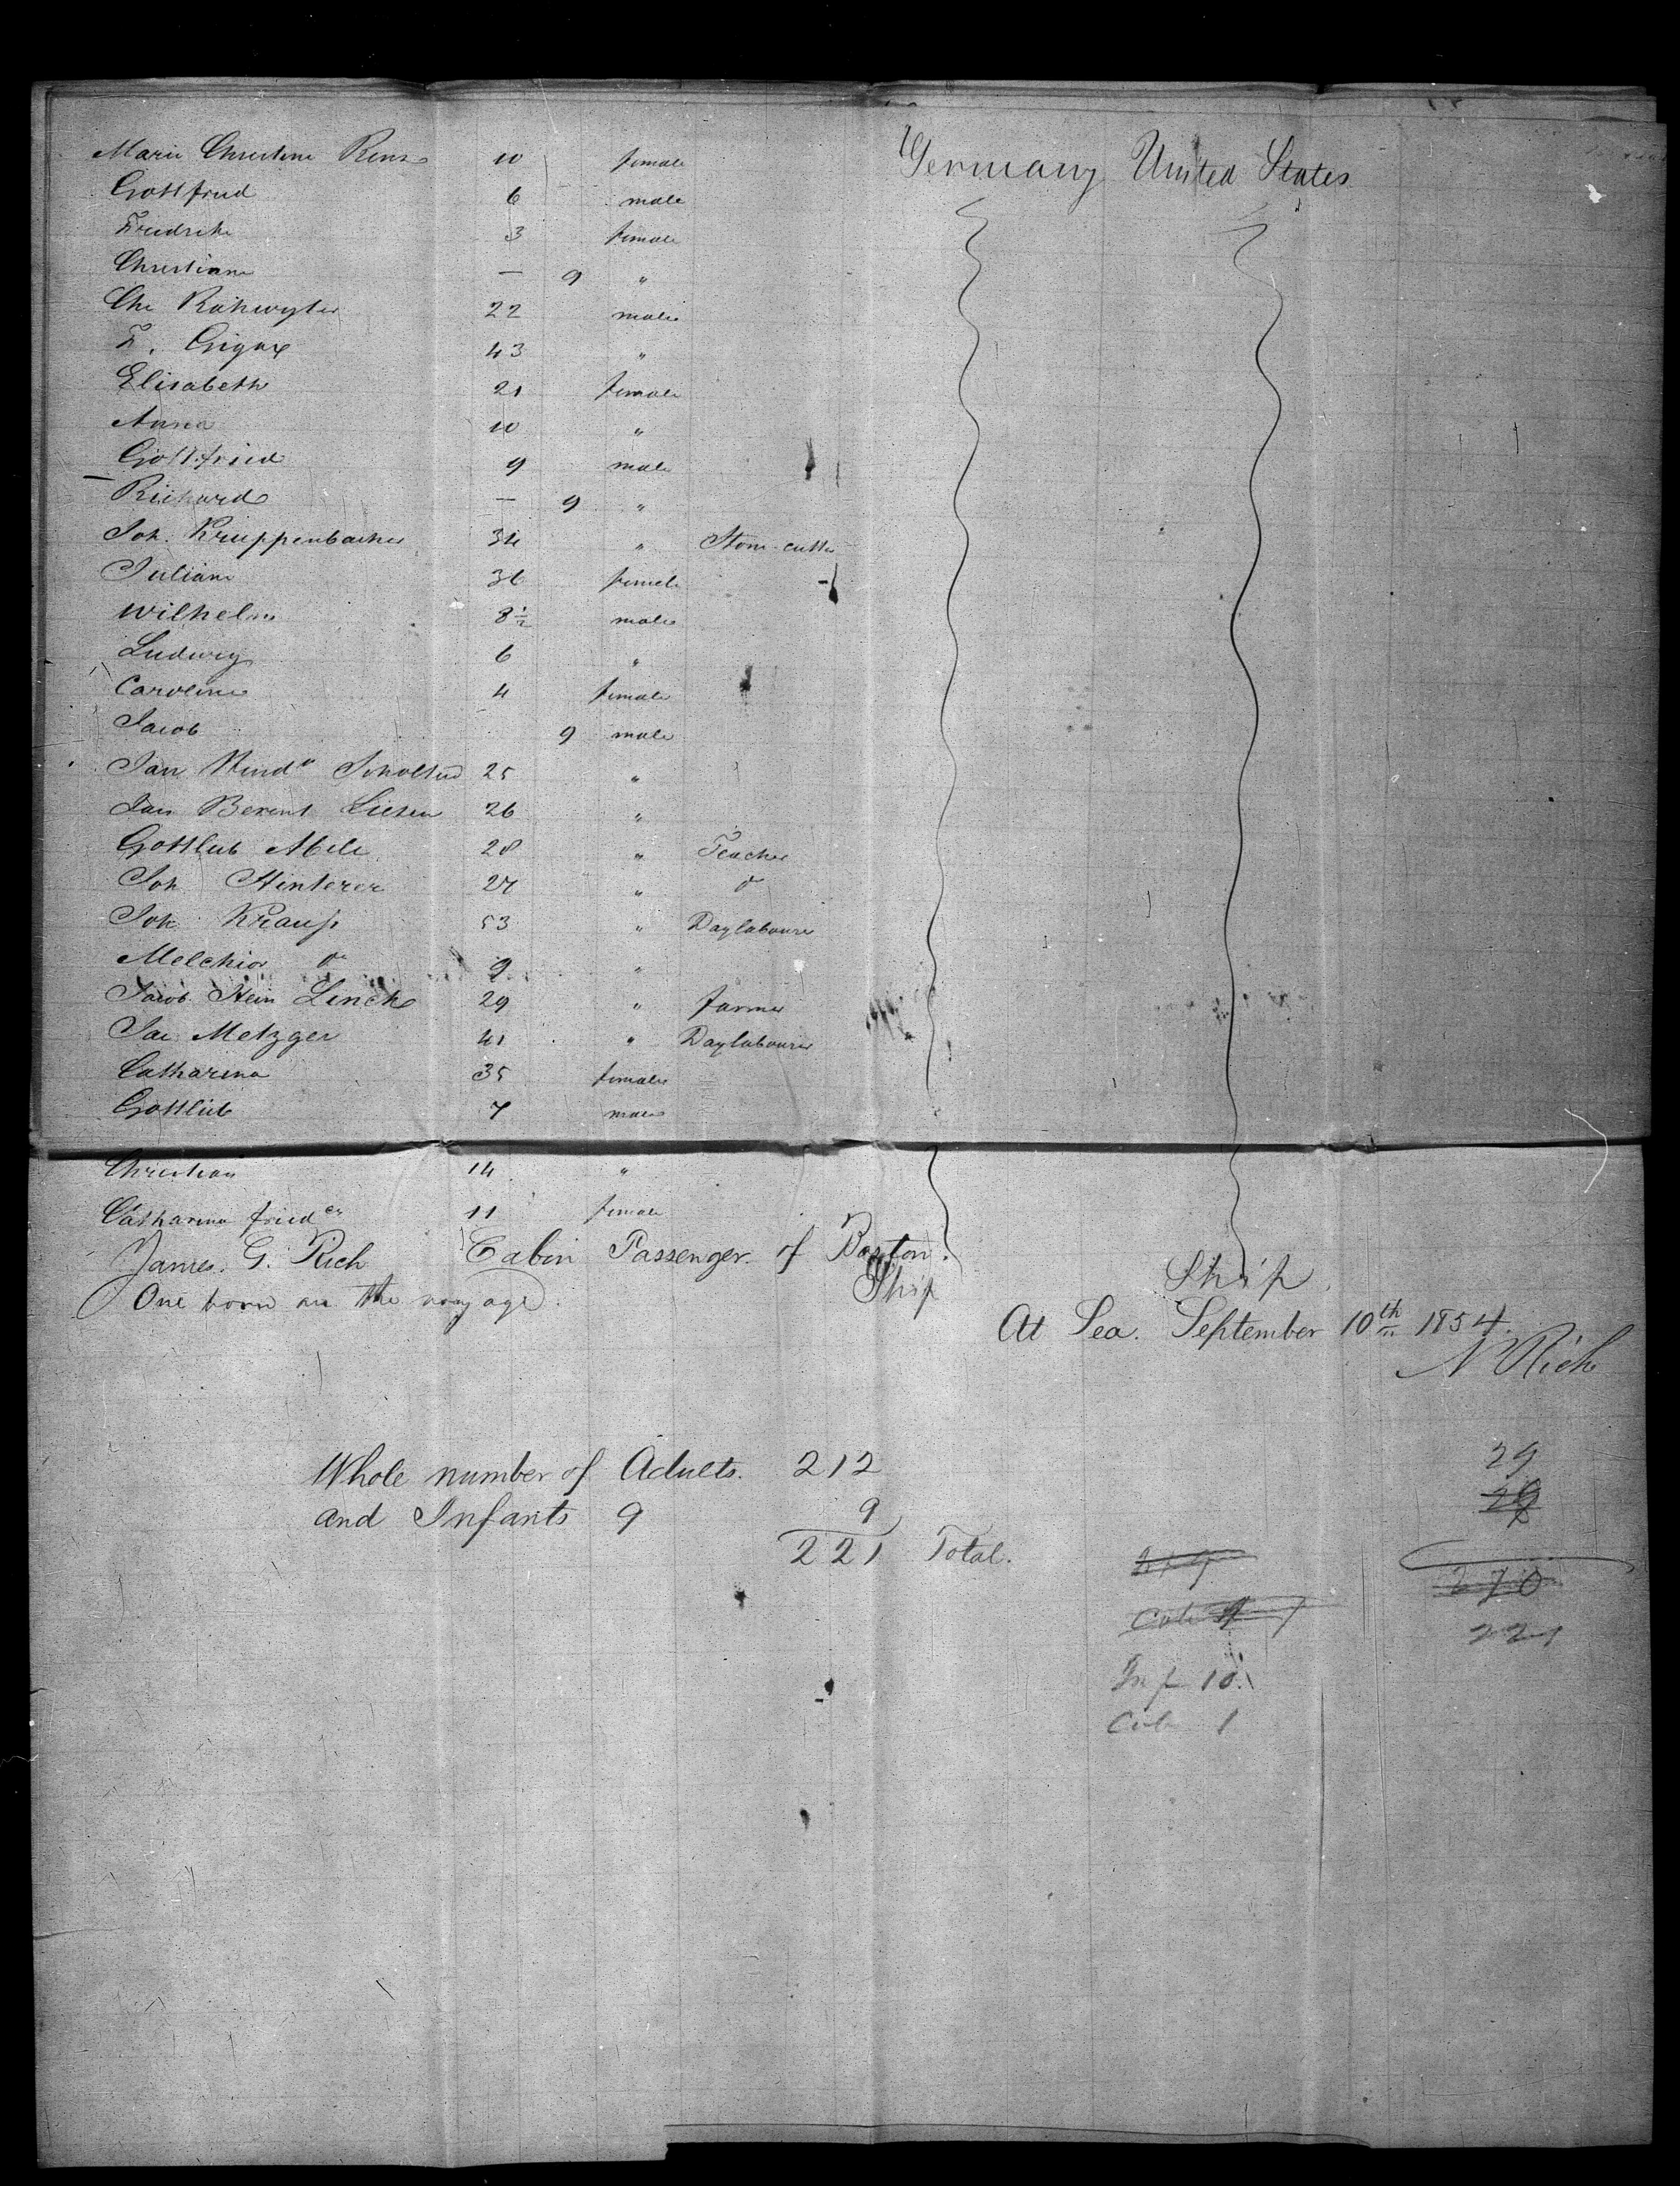 Marie Christine Rens 10 female Germany United States
Gottfried 6 male
Friedrike 3 female
Christiane — 9 "
Che 22 male
F. Gigax 43 "
Elisabeth 21 female
Anna 10 "
Gottfried 9 male
Richard — 9 "
Joh. Kruppenbacher 34 " Stone-cutter
Juliane 36 female
Wilhelm 8½ male
Ludwig 6 "
Caroline 4 female
Jacob 9 male
Jan Hind Scholten 25 "
Jan Berent Liesen 26 "
Gottlieb Abele 28 " Teacher
Joh Hinterer 27 " do
Joh Krauss 53 " Daylabourer
Melchior do 9 "
Jacob Hein Lincke 29 " farmer
Jac Metzger 41 " Daylabourer
Catharina 35 female
Gottlieb 7 male
Christian 14 "
Catharina fried 11 female
James. G. Rich Cabin Passenger. of Boston.
Ship Ship
One born on the voyage.
At Sea. September 10th 1854.
N Rich
Whole number of Adults. 212 29
and Infants 9 9
221 Total.
270
221
Inf 10
Cab 1